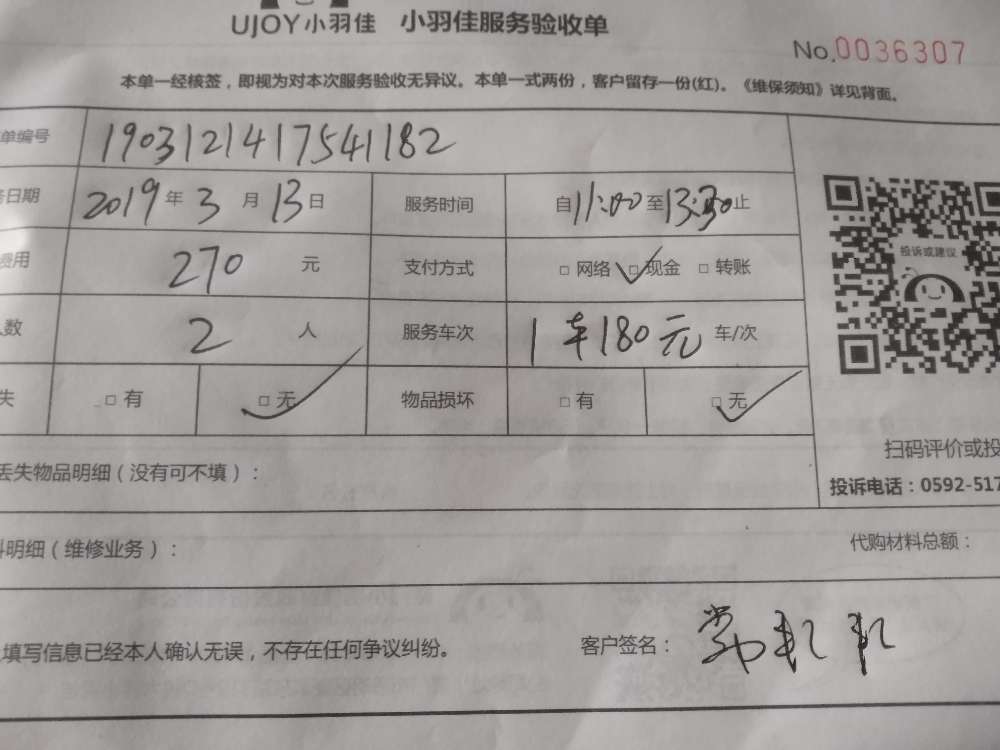 UJOY小羽佳 小羽佳服务验收单
No.0036307
本单一经核签，即视为对本次服务验收无异议。本单一式两份，客户留存一份(红)。《维保须知》详见背面。
单编号 1903121417541182
务日期 2019年3月13日 服务时间 自11:00至13:30止
费用 270 元 支付方式 □网络 □现金 □转账
人数 2 人 服务车次 1车180元 车/次
失 □有 □无 物品损坏 □有 □无
投诉或建议
扫码评价或投
投诉电话：0592-517
丢失物品明细（没有可不填）：
料明细（维修业务）： 代购材料总额：
填写信息已经本人确认无误，不存在任何争议纠纷。 客户签名：